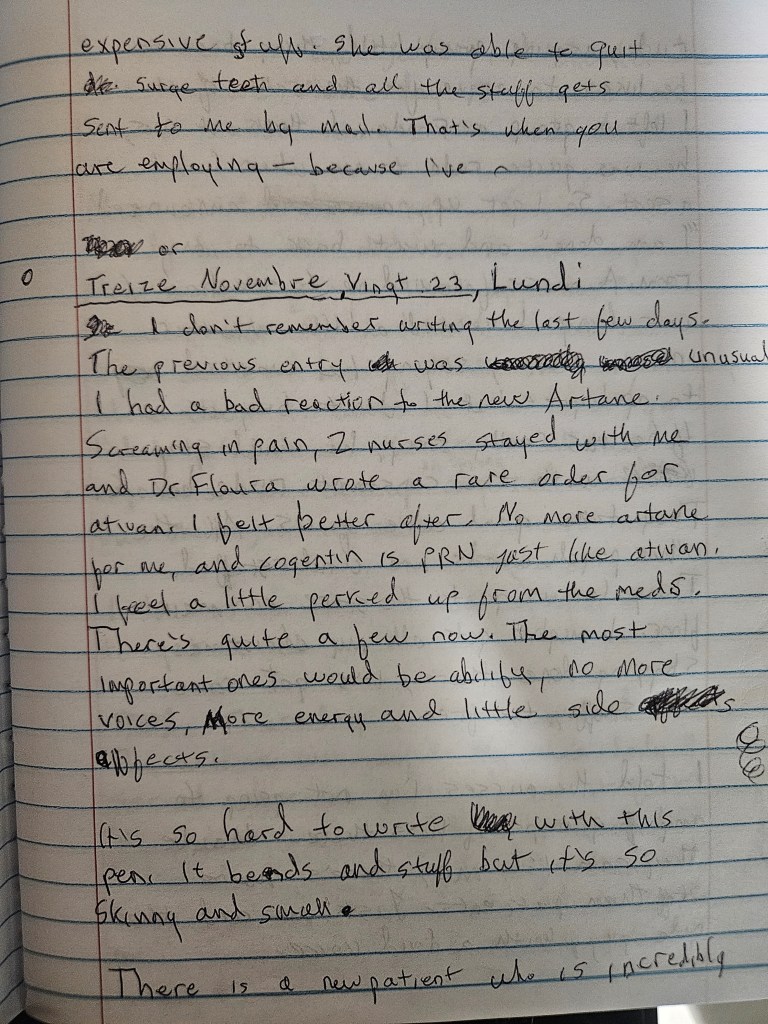 expensive stuff. She was able to quit
surge teeth and all the stuff gets
sent to me by mail. That's when you
are employing — because I've
or
Treize Novembre, Vingt 23, Lundi
I don't remember writing the last few days.
The previous entry was unusual
I had a bad reaction to the new Artane.
Screaming in pain, 2 nurses stayed with me
and Dr Floura wrote a rare order for
ativan. I felt better after. No more artane
for me, and cogentin is PRN just like ativan.
I feel a little perked up from the meds.
There's quite a few now. The most
important ones would be abilify, no more
voices, More energy and little side
effects.
It's so hard to write with this
pen. It bends and stuff but it's so
skinny and small.
There is a new patient who is incredibly